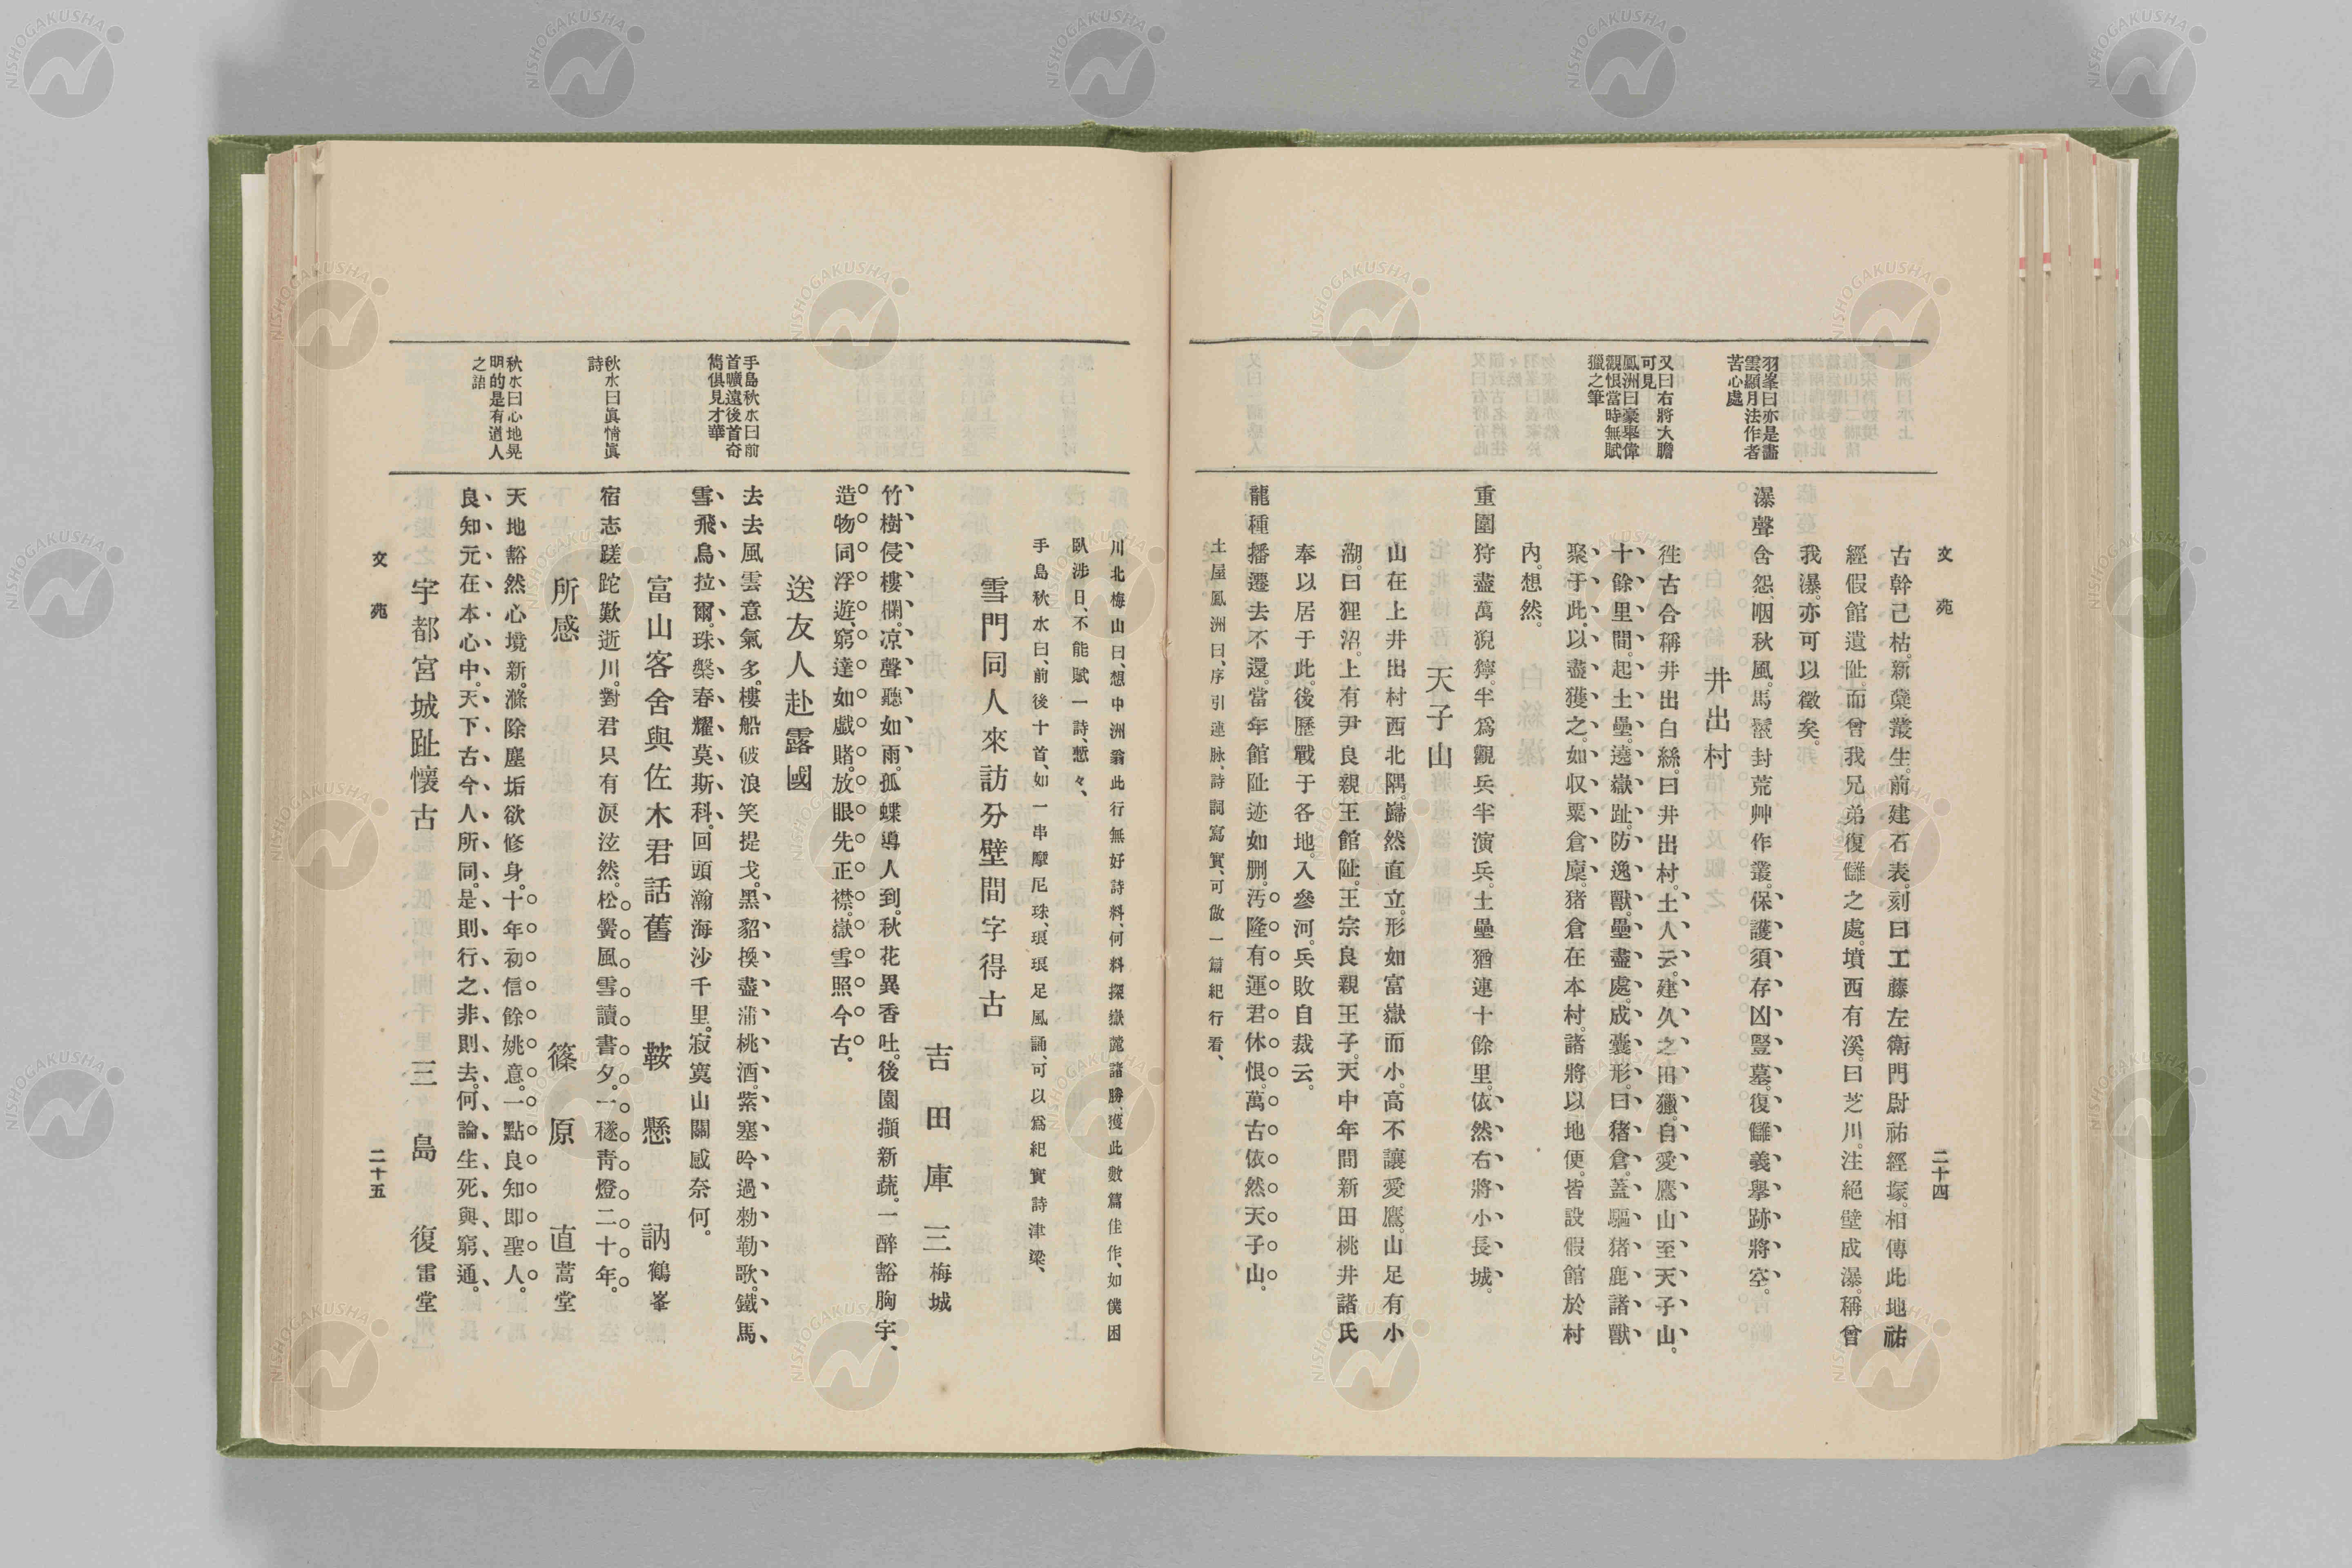 文苑
二十四
羽峯曰亦是畵
雲顯月法作者
苦心處
又曰右將大膽
可見
鳳洲曰豪舉偉
觀恨當時無賦
獵之筆
古幹己枯。新蘖叢生。前建石表。刻曰工藤左衛門尉祐經塚。相傳此地祐
經假館遺阯。而曾我兄弟復讎之處。墳西有溪。曰芝川。注絕壁成瀑。稱曾
我瀑。亦可以徵矣。
瀑聲舍怨、咽秋風。馬鬣封荒艸作叢。保護須存凶豎墓。復讎義擧跡將空。
井出村
徃古合稱井出白絲。曰井出村。土人云。建久之田獵。自愛鷹山至天子山。
十餘里間。起土壘。遶嶽趾。防逸獸。壘盡處。成囊形。曰猪倉。蓋驅猪鹿諸獸
聚于此。以盡獲之。如収粟倉廩。猪倉在本村。諸將以地便。皆設假館於村
內。想然。
重圍狩盡萬猊獰。半爲觀兵半演兵。土壘猶連十餘里。依然右將小長城。
天子山
山在上井出村西北隅。巋然直立。形如富嶽而小。高不讓愛鷹。山足有小
湖。曰狸沼。上有尹良親王館阯。王宗良親王子。天中年間新田桃井諸氏
奉以居于此。後歷戰于各地。入參河。兵敗自裁云。
龍種播遷去不還。當年館阯迹如删。汚隆有運君休恨。萬古依然天子山。
土屋鳳洲曰、序引連脉、詩詞寫實、可做一篇紀行看、
川北梅山曰、想中洲翁此行無好詩料、何料探嶽麓諸勝、獲此數篇佳作、如僕困
臥涉日、不能賦一詩、慙々、
手島秋水曰、前後十首、如一串摩尼珠、琅琅足風誦、可以爲紀實詩津梁、
雪門同人來訪分壁間字得古
吉田庫三梅城
竹樹侵樓欄。凉聲聽如雨。孤蝶導人到。秋花異香吐。後園擷新蔬。一醉豁胸宇、
造物同浮遊、窮達如戲賭。放眼先正襟。嶽雪照今古。
送友人赴露國
手島秋水曰前
首曠遠後首奇
雋俱見才華
去去風雲意氣多。樓船破浪笑提戈。黑貂換盡蒲桃酒。紫塞吟過勑勒歌。鐵馬、
雪飛烏拉爾。珠槃春耀莫斯科。回頭瀚海沙千里。寂寞山關感奈何。
富山客舍與佐木君話舊
鞍懸訥鶴峯
秋水曰眞情眞
詩
宿志蹉跎歎逝川。對君只有淚泫然。松黌風雪讀書夕。一穟靑燈二十年。
所感
篠原直蒿堂
秋水曰心地晃
明的是有道人
之語
天地豁然心境新。滌除塵垢欲修身。十年初信餘姚意。一點良知即聖人。
良知元在本心中。天下古今人所同。是則行之非則去。何論生死與窮通。
宇都宮城趾懷古
三島復雷堂
文苑
二十五
NISHOGAKUSHA